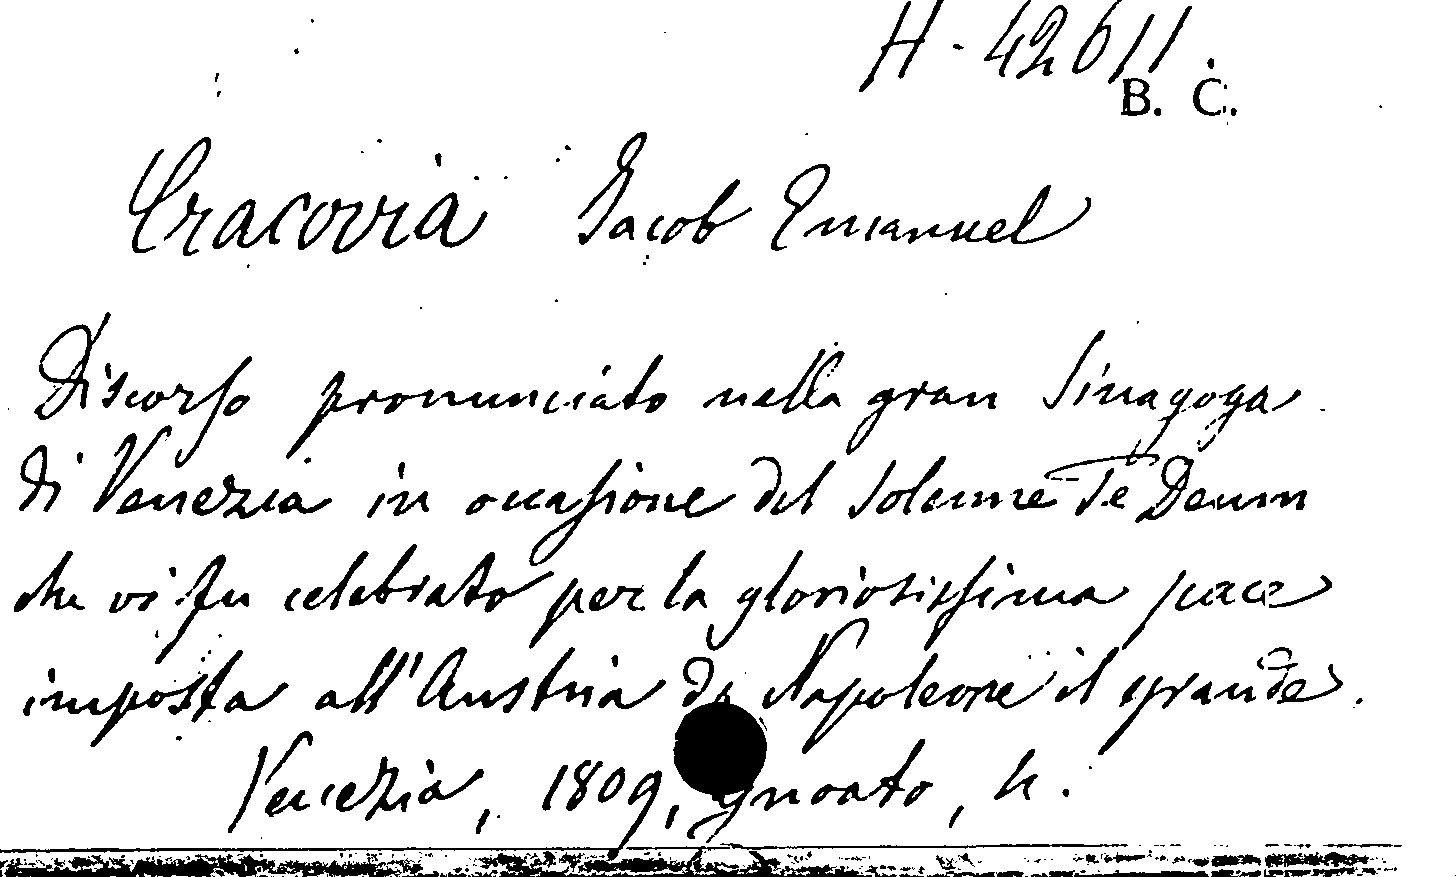 H-42611.
B. C.
Cracovia Jacob Emanuel
Discorso pronunciato nella gran Sinagoga
di Venezia in occasione del solenne Te Deum
che vi fu celebrato per la gloriosissima pace
imposta all'Austria da Napoleone il grande.
Venezia, 1809, 4.